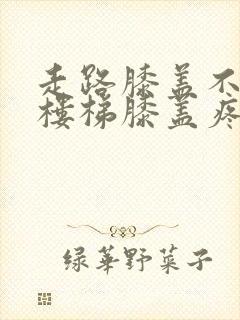 走路膝盖不
楼梯膝盖疼
绿华野菜子